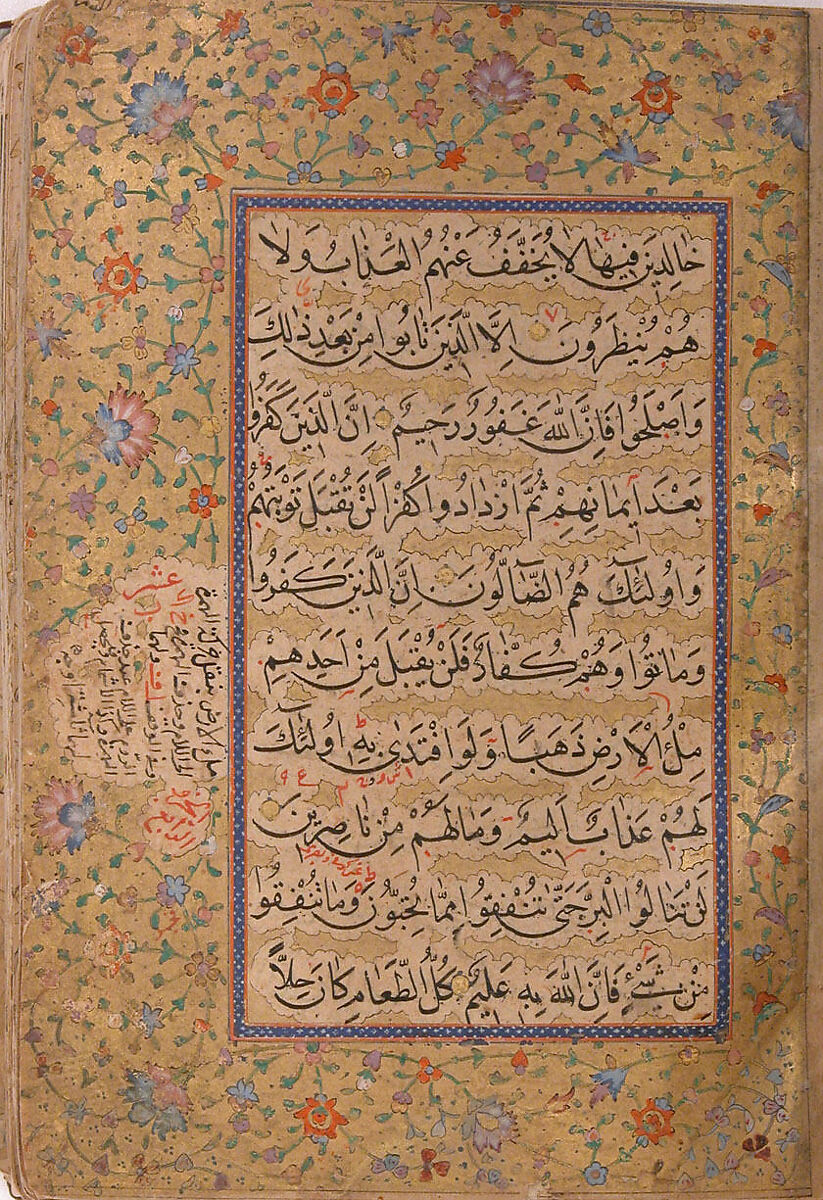 خَالِدِينَ فِيهَا لَا يُخَفَّفُ عَنْهُمُ الْعَذَابُ وَلَا
هُمْ يُنْظَرُونَ اِلَّا الَّذِينَ تَابُوا مِنْ بَعْدِ ذٰلِكَ
وَاَصْلَحُوا فَاِنَّ اللّٰهَ غَفُورٌ رَحِيمٌ اِنَّ الَّذِينَ كَفَرُوا
بَعْدَ اِيمَانِهِمْ ثُمَّ ازْدَادُوا كُفْرًا لَنْ تُقْبَلَ تَوْبَتُهُمْ
وَاُولٰٓئِكَ هُمُ الضَّآلُّونَ اِنَّ الَّذِينَ كَفَرُوا
وَمَاتُوا وَهُمْ كُفَّارٌ فَلَنْ يُقْبَلَ مِنْ اَحَدِهِمْ
مِلْءُ الْاَرْضِ ذَهَبًا وَلَوِ افْتَدٰى بِهِ اُولٰٓئِكَ
لَهُمْ عَذَابٌ اَلِيمٌ وَمَا لَهُمْ مِنْ نَاصِرِينَ
لَنْ تَنَالُوا الْبِرَّ حَتّٰى تُنْفِقُوا مِمَّا تُحِبُّونَ وَمَا تُنْفِقُوا
مِنْ شَيْءٍ فَاِنَّ اللّٰهَ بِهِ عَلِيمٌ كُلُّ الطَّعَامِ كَانَ حِلًّا